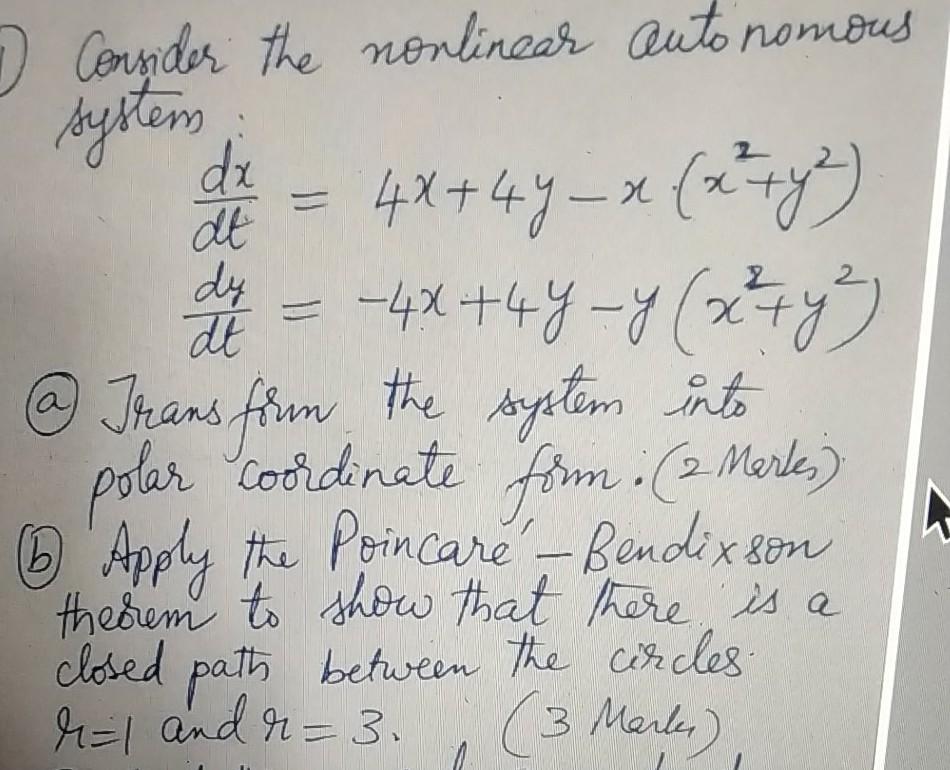 1) Consider the nonlinear autonomous
system:
dx/dt = 4x+4y-x(x²+y²)
dy/dt = -4x+4y-y(x²+y²)
(a) Transform the system into
polar coordinate form. (2 Marks)
(b) Apply the Poincaré-Bendixson
theorem to show that there is a
closed path between the circles
r=1 and r=3. (3 Marks)